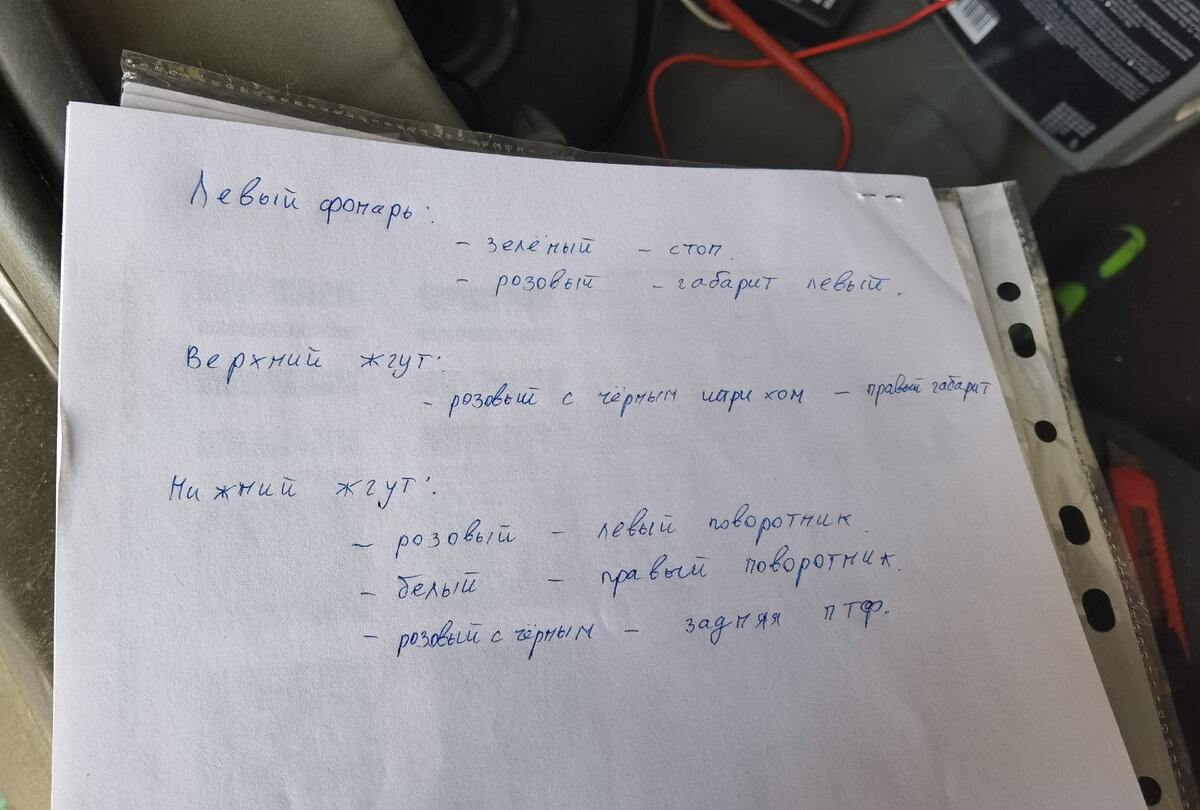 Левый фонарь:
- зелёный - стоп.
- розовый - габарит левый.
Верхний жгут:
- розовый с чёрным штрихом - правый габарит
Нижний жгут:
- розовый - левый поворотник.
- белый - правый поворотник.
- розовый с чёрным - задняя птф.